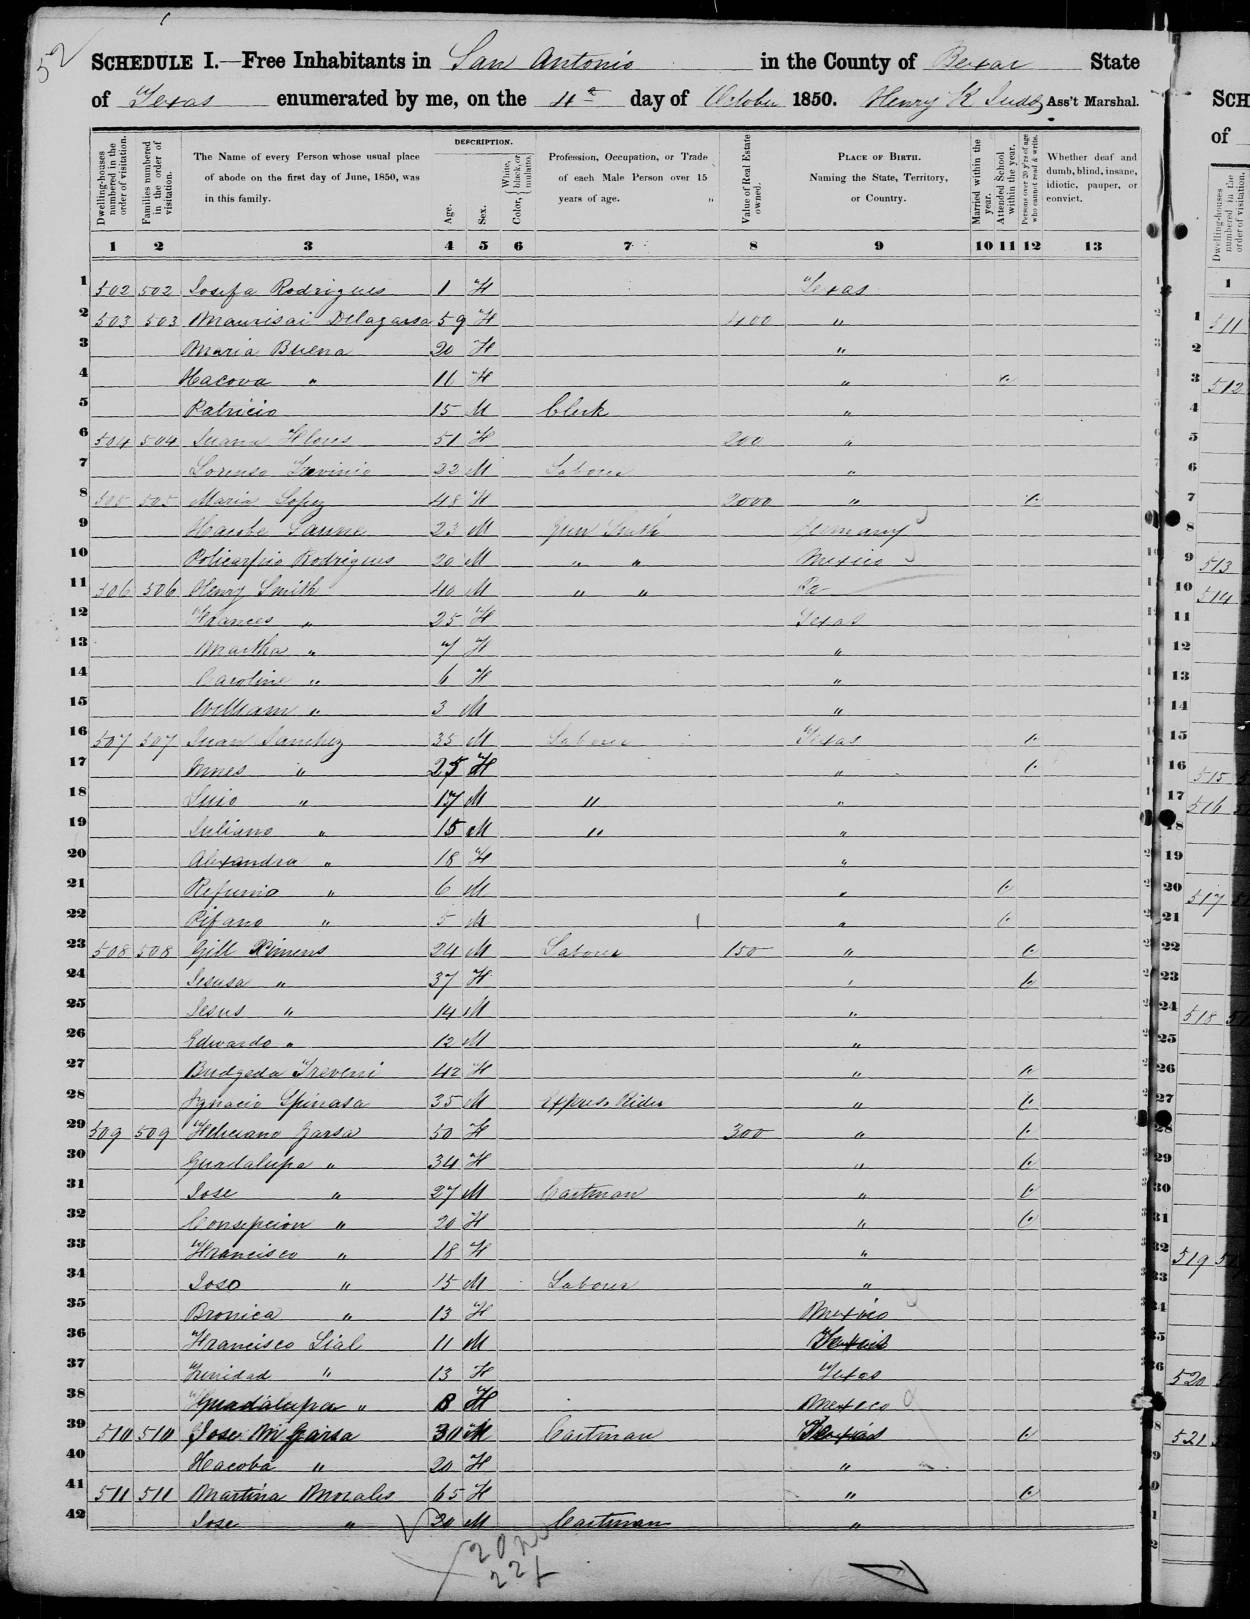 52
SCHEDULE I.—Free Inhabitants in San Antonio in the County of Bexar State
of Texas enumerated by me, on the 4th day of October 1850. Henry K Judd Ass't Marshal.
Dwelling-houses numbered in the order of visitation.
Families numbered in the order of visitation.
The Name of every Person whose usual place of abode on the first day of June, 1850, was in this family.
DESCRIPTION.
Age.
Sex.
Color, White, black, or mulatto.
Profession, Occupation, or Trade of each Male Person over 15 years of age.
Value of Real Estate owned.
PLACE OF BIRTH. Naming the State, Territory, or Country.
Married within the year.
Attended School within the year.
Persons over 20 y'rs of age who cannot read & write.
Whether deaf and dumb, blind, insane, idiotic, pauper, or convict.
1 2 3 4 5 6 7 8 9 10 11 12 13
1 502 502 Josefa Rodrigues 1 F Texas
2 503 503 Maurisai Delagarsa 59 F 400 "
3 Maria Buena 20 F "
4 Facova " 11 F "
5 Patricio 15 M Clerk "
6 504 504 Juana Flores 51 F 200 "
7 Lorenso Trevinio 22 M Laborer "
8 505 505 Maria Lopez 48 F 2000 "
9 23 M Gun Smith Germany
10 Policarpio Rodrigues 20 M " " Mexico
11 506 506 Henry Smith 40 M " " Pa
12 Frances " 25 F Texas
13 Martha " 7 F "
14 Caroline " 6 F "
15 William " 3 M "
16 507 507 Juan Sanchez 35 M Laborer Texas
17 Ynnes " 25 F "
18 Luio " 17 M " "
19 Juliano " 15 M " "
20 Alexandra " 18 F "
21 Refumio " 6 M "
22 Pifano " 5 M "
23 508 508 Gill Ximens 24 M Laborer 150 "
24 Jesusa " 37 F "
25 Jesus " 14 M "
26 Edwardo " 12 M "
27 Budgeda Treveni 42 F "
28 Ignacio Spinasa 35 M Express Rider "
29 509 509 Feliciano Garsa 50 F 300 "
30 Guadalupa " 34 F "
31 Jose " 27 M Cartman "
32 Consepcion " 20 F "
33 Francisco " 18 F "
34 Joso " 15 M Laborer "
35 Bronica " 13 F Mexico
36 Francisco Lial 11 M Texas
37 Trinidad " 13 F Texas
38 Guadalupa " 8 F Mexico
39 510 510 Jose M Garsa 30 M Cartman Texas
40 Facoba " 20 F "
41 511 511 Martina Morales 65 F "
42 Jose " 30 M Cartman "
20 m
22 f
SCH
of
Dwelling-houses numbered in the order of visitation.
1
1 511
2
3 512
4
5
6
7
8
9 513
10 514
11
12
13
14
15
16 515
17 516
18
19
20 517
21
22
23
24 518
25
26
27
28
29
30
31
32 519
33
34
35
36 520
521